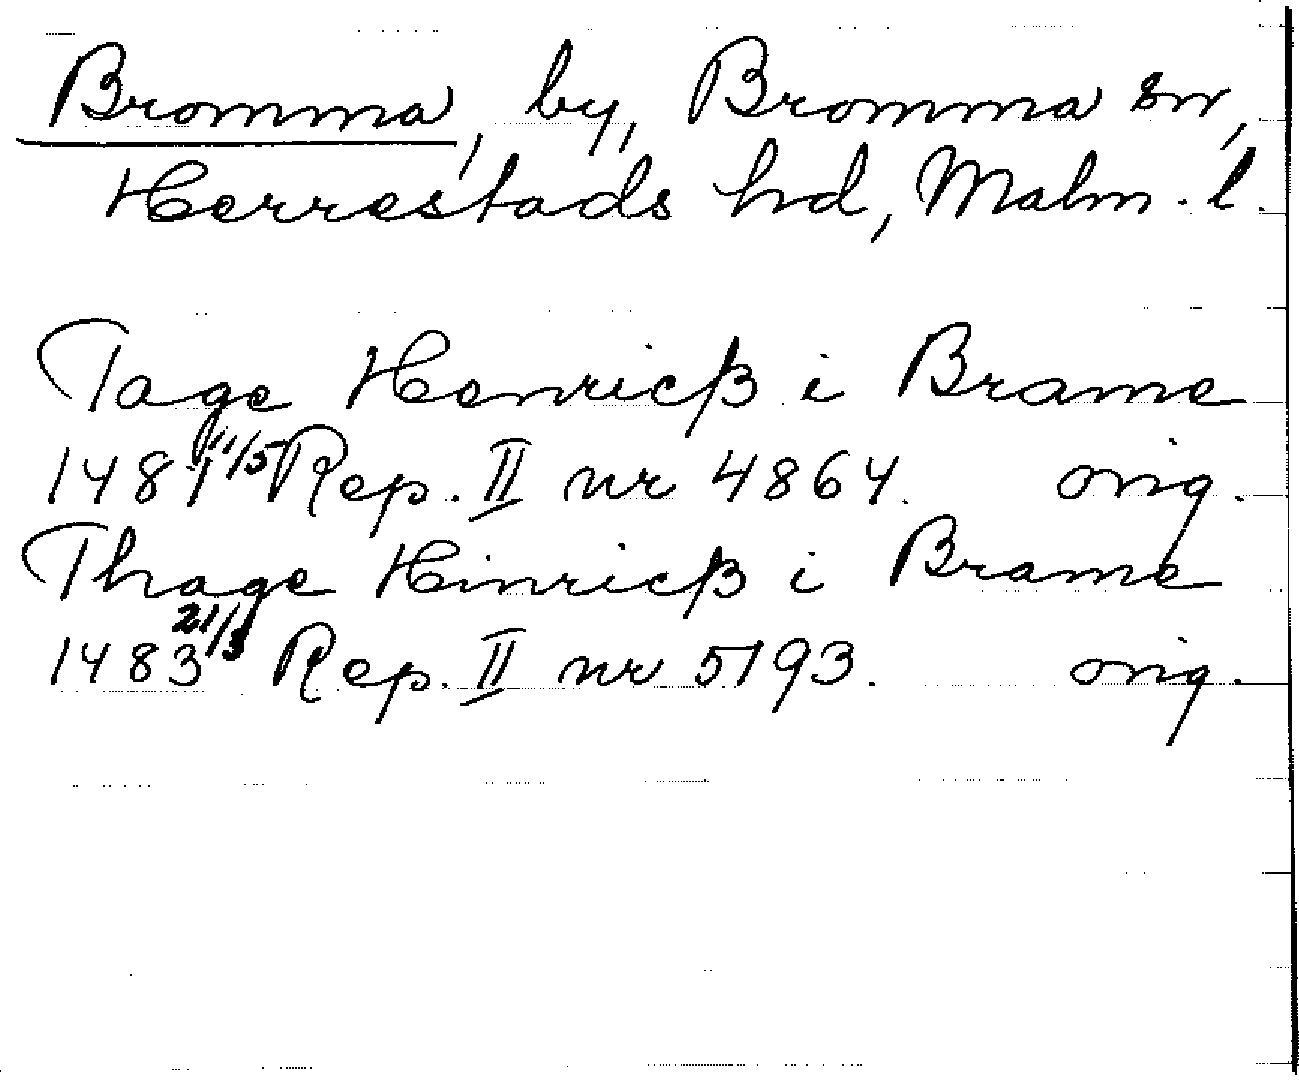 Bromma, by, Bromma sn,
Herrestads hd, Malm. l.
Tage Henricß i Brame
1481 11/5 Rep. II nr 4864. orig.
Thage Hinricß i Brame
1483 21/3 Rep. II nr 5193. orig.